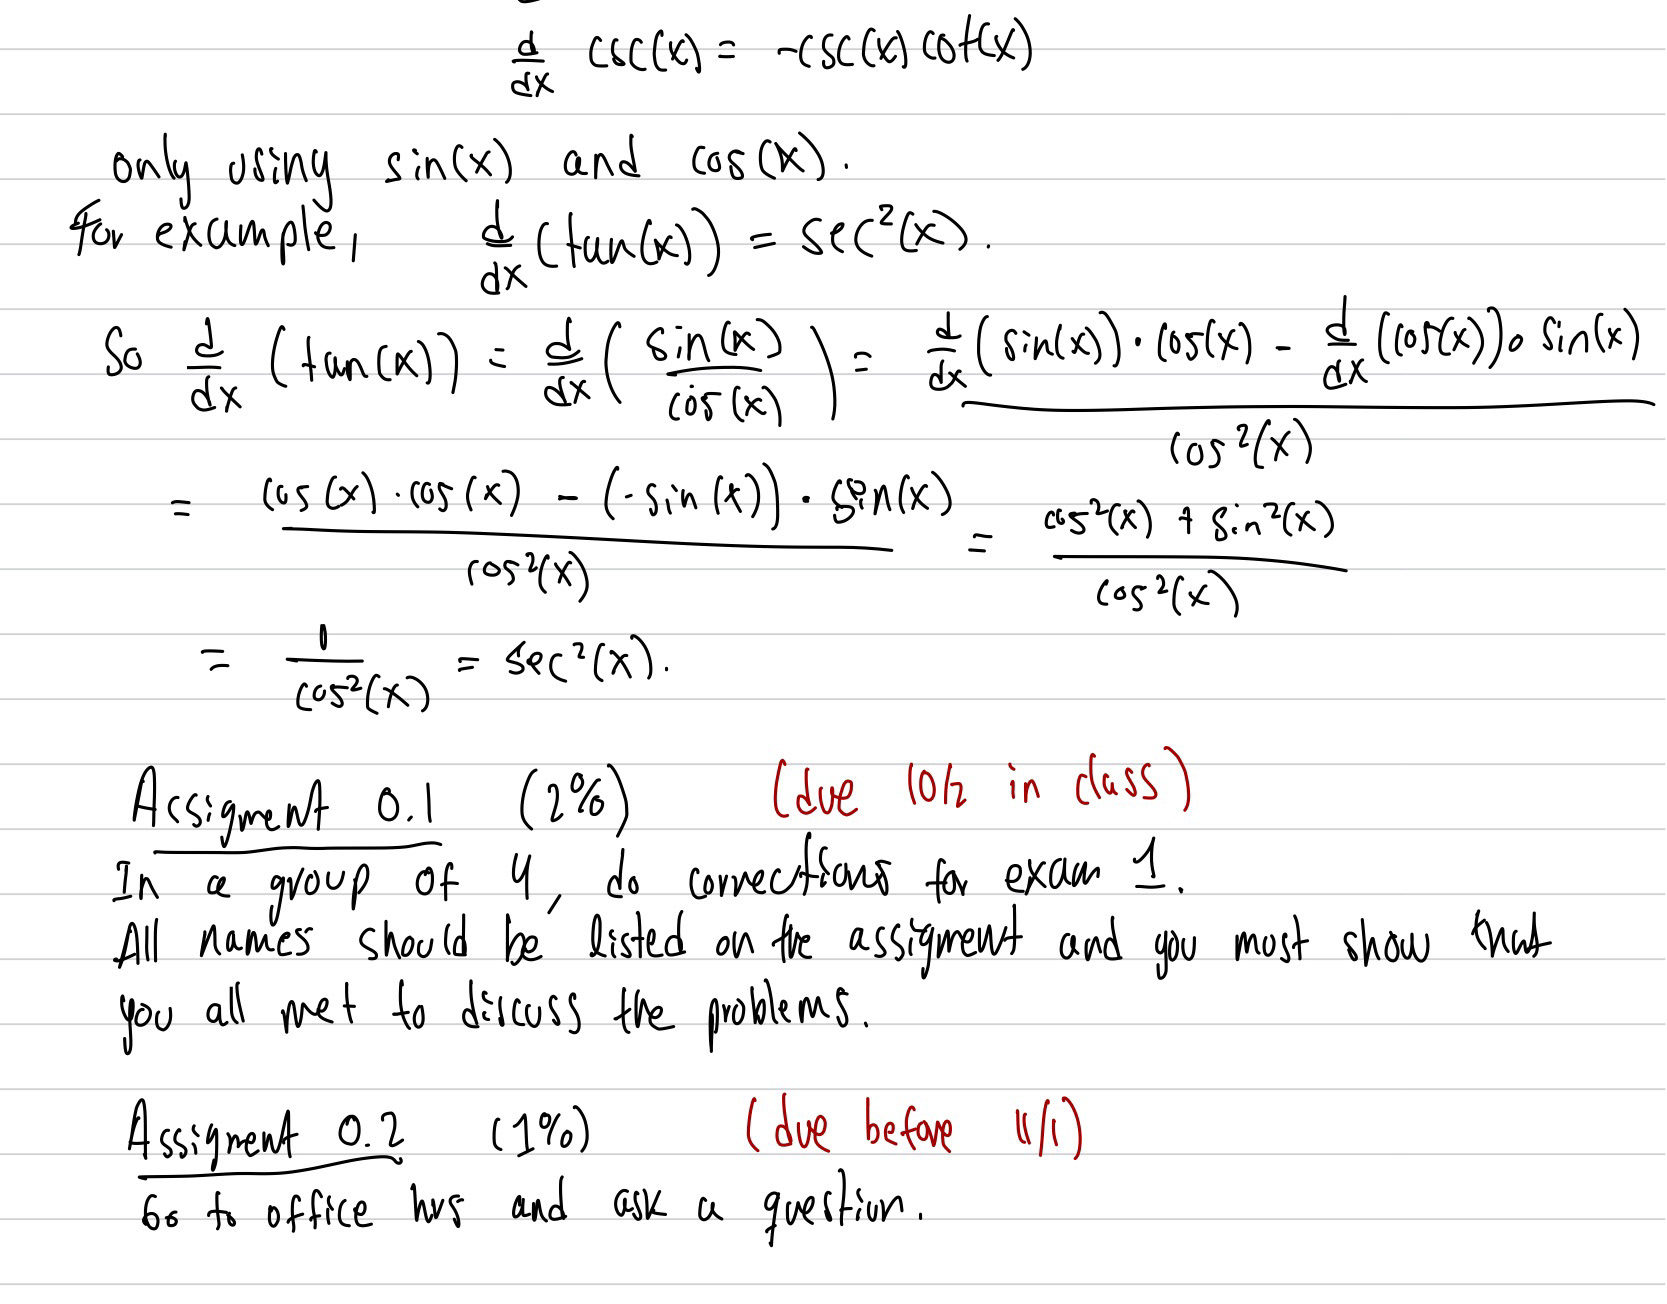 d/dx csc(x) = -csc(x) cot(x)
only using sin(x) and cos(x).
For example, d/dx (tan(x)) = sec²(x).
So d/dx (tan(x)) = d/dx (sin(x)/cos(x)) = (d/dx (sin(x)) · cos(x) - d/dx (cos(x)) · sin(x))/cos²(x)
= (cos(x) · cos(x) - (-sin(x)) · sin(x))/cos²(x) = (cos²(x) + sin²(x))/cos²(x)
= 1/cos²(x) = sec²(x).
Assigment 0.1 (2%) (due 10/2 in class)
In a group of 4, do corrections for exam 1.
All names should be listed on the assigment and you must show that
you all met to discuss the problems.
Assigment 0.2 (1%) (due before 11/1)
Go to office hrs and ask a question.